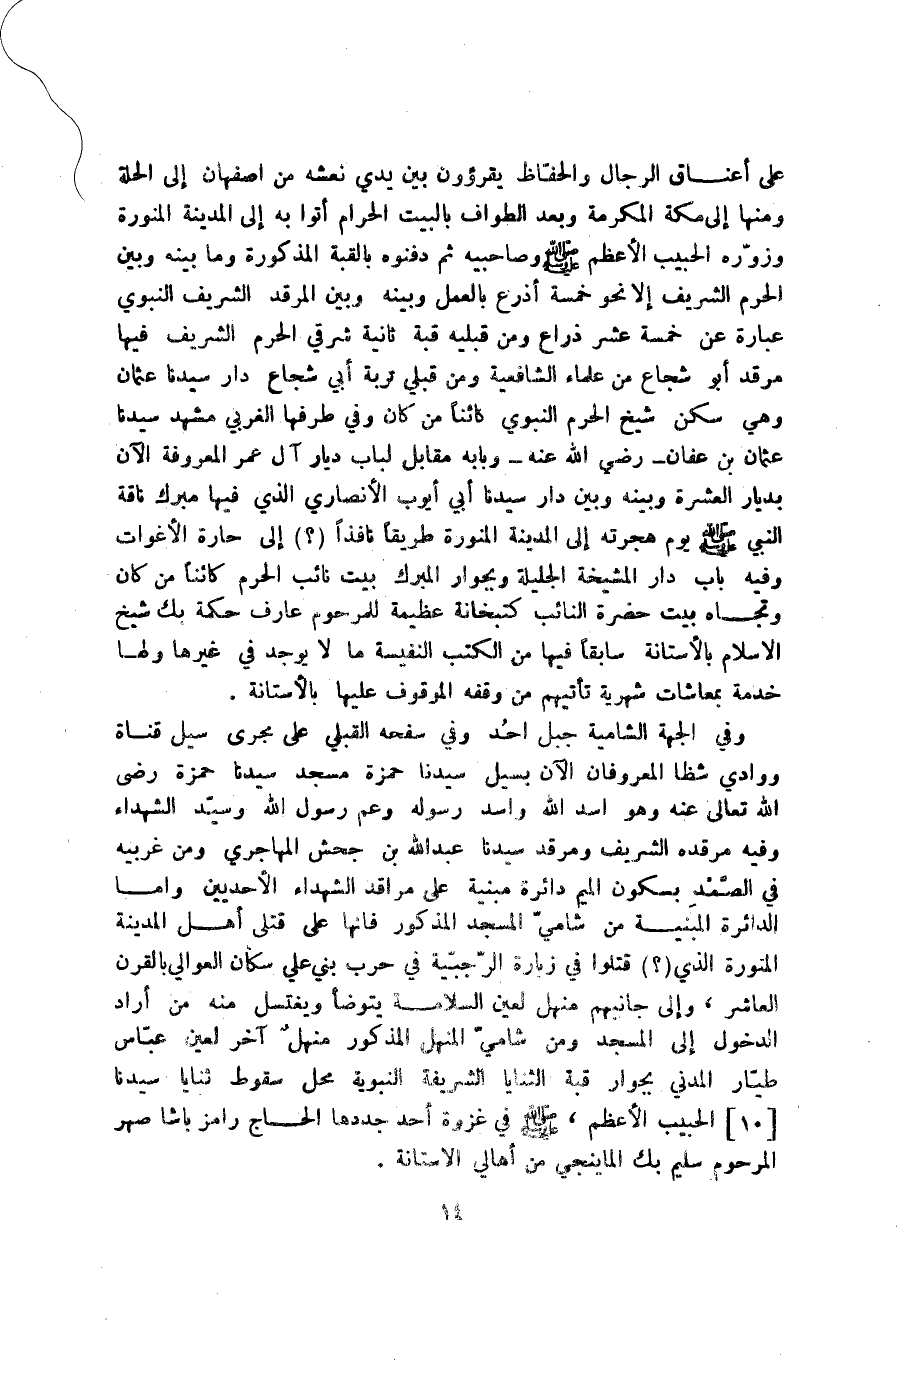 على أعنـــاق الرجال والحفّاظ يقرؤون بين يدي نعشه من اصفهان إلى الحلة
ومنها إلى مكة المكرمة وبعد الطواف بالبيت الحرام أتوا به إلى المدينة المنورة
وزوّره الحبيب الأعظم ﷺ وصاحبيه ثم دفنوه بالقبة المذكورة وما بينه وبين
الحرم الشريف إلا نحو خمسة أذرع بالعمل وبينه وبين المرقد الشريف النبوي
عبارة عن خمسة عشر ذراع ومن قبليه قبة ثانية شرقي الحرم الشريف فيها
مرقد أبو شجاع من علماء الشافعية ومن قبلي تربة أبي شجاع دار سيدنا عثمان
وهي سكن شيخ الحرم النبوي كائناً من كان وفي طرفها الغربي مشهد سيدنا
عثمان بن عفان ـ رضي الله عنه ـ وبابه مقابل لباب ديار آل عمر المعروفة الآن
بديار العشرة وبينه وبين دار سيدنا أبي أيوب الأنصاري الذي فيها مبرك ناقة
النبي ﷺ يوم هجرته إلى المدينة المنورة طريقاً نافذاً (؟) إلى حارة الأغوات
وفيه باب دار المشيخة الجليلة وبجوار المبرك بيت نائب الحرم كائناً من كان
وتجـــاه بيت حضرة النائب كتبخانة عظيمة للمرحوم عارف حكمة بك شيخ
الاسلام بالأستانة سابقاً فيها من الكتب النفيسة ما لا يوجد في غيرها ولهـا
خدمة بمعاشات شهرية تأتيهم من وقفه الموقوف عليها بالأستانة .
وفي الجهة الشامية جبل احُد وفي سفحه القبلي على مجرى سيل قنـاة
ووادي شظا المعروفان الآن بسيل سيدنا حمزة مسجد سيدنا حمزة رضى
الله تعالى عنه وهو اسد الله واسد رسوله وعم رسول الله وسيّد الشهداء
وفيه مرقده الشريف ومرقد سيدنا عبدالله بن جحش المهاجري ومن غربيه
في الصَّمْدِ بسكون الميم دائرة مبنية على مراقد الشهداء الأحديين وامـــا
الدائرة المبنيـــة من شاميّ المسجد المذكور فانها على قتلى أهـــل المدينة
المنورة الذي (؟) قتلوا في زيارة الرّجبيّة في حرب بني علي سكان العوالي بالقرن
العاشر ، وإلى جانبهم منهل لعين السلامـــة يتوضأ ويغتسل منه من أراد
الدخول إلى المسجد ومن شاميّ المنهل المذكور منهلٌ آخر لعين عبّاس
طيّار المدني بجوار قبة الثنايا الشريفة النبوية محل سقوط ثنايا سيدنا
[١٠] الحبيب الأعظم ، ﷺ في غزوة أحد جددها الحـــاج رامز باشا صهر
المرحوم سليم بك الماينجي من أهالي الاستانة .
١٤